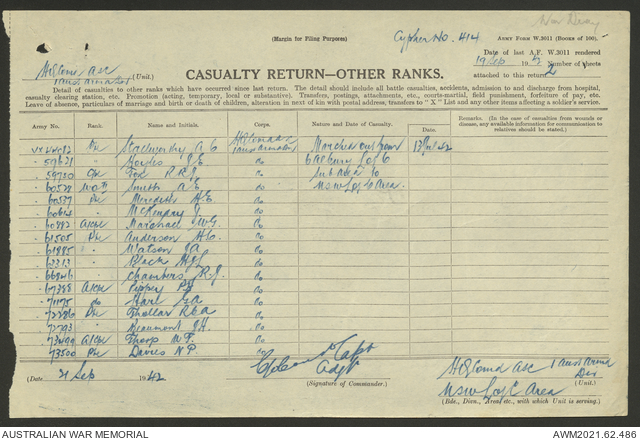 War Diary
(Margin for Filing Purposes)
Cypher No. 414
ARMY FORM W.3011 (BOOKS OF 100).
Date of last A.F. W.3011 rendered
19 Sep
Number of sheets
attached to this return 2
(Unit.)
CASUALTY RETURN—OTHER RANKS.
Detail of casualties to other ranks which have occurred since last return. The detail should include all battle casualties, accidents, admission to and discharge from hospital,
casualty clearing station, etc. Promotion (acting, temporary, local or substantive). Transfers, postings, attachments, etc., courts-martial, field punishment, forfeiture of pay, etc.
Leave of absence, particulars of marriage and birth or death of children, alteration in next of kin with postal address, transfers to "X" List and any other items affecting a soldier's service.
Army No. Rank. Name and Initials. Corps. Nature and Date of Casualty. Date. Remarks. (In the case of casualties from wounds or disease, any available information for communication to relatives should be stated.)
Pte Stallworthy A E Marched out from 13 Jul 42
59821 Hoyles J E Do L of C
59750 Cpl Fox R R J Do Sub area to
60528 Smith A E Do NSW L of C Area.
60537 Pte Meredith H E Do
60614 McKenday J Do
60992 A/Cpl Marshall W G Do
61505 Pte Anderson H C Do
61985 Watson J A Do
63313 Black H J L Do
66846 Chambers R J Do
67388 A/Cpl Pepper P J Do
71175 do Harl G A Do
72286 Pte Thollar R E A Do
72793 Beaumont J H. Do
73499 A/Cpl Thorp W F. Do
73500 Pte Davies N P. Do
(Date 21 Sep 1942
Capt
Adjt
(Signature of Commander.)
HQ Comd ASC 1 Aust Armd
Div
(Unit.)
NSW L of C Area
(Bde., Divn., Area, etc., with which Unit is serving.)
AUSTRALIAN WAR MEMORIAL
AWM2021.62.486